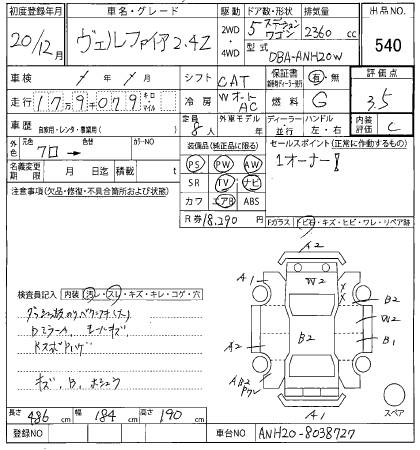 初度登録年月 車名・グレード 駆動 ドア数・形状 排気量 出品NO.
20/12月 ヴェルファイア 2.4Z 2WD・4WD 5 ステーションワゴン 2360 cc 540
型式 DBA-ANH20W
車検 / 年 / 月 シフト CAT 保証書 有・無 評価点
走行 17万9千079 キロ・マイル 冷房 Wオート AC 燃料 G 3.5
車歴 自家用・レンタ・事業用( ) 定員 8人 外車モデル 年 ディーラー・並行 ハンドル 左・右 内装評価 C
外色 元色 クロ → 色替 カラーNO 装備品(純正品に限る) セールスポイント(正常に作動するもの)
PS PW AW 1オーナー!
名義変更期限 月 日迄 積載 t SR TV ナビ
注意事項(欠品・修復・不具合箇所および状態) カワ エアB ABS
R券 18,290円 Fガラス トビ石・キズ・ヒビ・ワレ・リペア跡
検査員記入 内装 汚レ・スレ・キズ・キレ・コゲ・穴
A2
A1
W2
B2
W2
B1
B2
A2
A1
キズ、B、
長さ 486 cm 幅 184 cm 高さ 190 cm
スペア
登録NO 車台NO ANH20-8038727